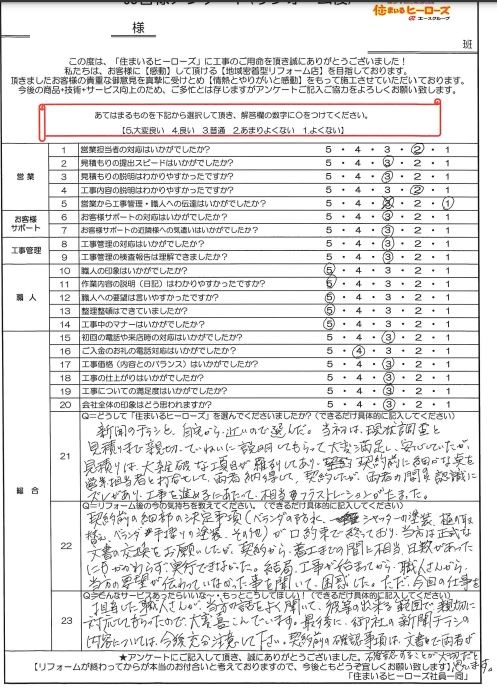 住まいるヒーローズ
エースグループ
様
班
この度は、「住まいるヒーローズ」に工事のご用命を頂き誠にありがとうございました！
私たちは、お客様に【感動】して頂ける【地域密着型リフォーム店】を目指しております。
頂きましたお客様の貴重な御意見を真摯に受け止め【情熱とやりがいと感動】をもって施工させていただいております。
今後の商品・技術・サービス向上のため、ご多忙とは存じますがアンケートご記入ご協力をよろしくお願い致します。
あてはまるものを下記から選択して頂き、解答欄の数字に○をつけてください。
【5.大変良い 4.良い 3.普通 2.あまりよくない 1.よくない】
営業
1 営業担当者の対応はいかがでしたか? 5 ・ 4 ・ 3 ・ 2 ・ 1
2 見積もりの提出スピードはいかがでしたか? 5 ・ 4 ・ 3 ・ 2 ・ 1
3 見積もりの説明はわかりやすかったですか? 5 ・ 4 ・ 3 ・ 2 ・ 1
4 工事内容の説明はわかりやすかったですか? 5 ・ 4 ・ 3 ・ 2 ・ 1
5 営業から工事管理・職人への伝達はいかがでしたか? 5 ・ 4 ・ 3 ・ 2 ・ 1
お客様
サポート
6 お客様サポートの対応はいかがでしたか? 5 ・ 4 ・ 3 ・ 2 ・ 1
7 お客様サポートの近隣様への気遣いはいかがでしたか? 5 ・ 4 ・ 3 ・ 2 ・ 1
工事管理
8 工事管理の対応はいかがでしたか? 5 ・ 4 ・ 3 ・ 2 ・ 1
9 工事管理の検査報告は理解できましたか? 5 ・ 4 ・ 3 ・ 2 ・ 1
職人
10 職人の印象はいかがでしたか? 5 ・ 4 ・ 3 ・ 2 ・ 1
11 作業内容の説明（日記）はわかりやすかったですか? 5 ・ 4 ・ 3 ・ 2 ・ 1
12 職人への要望は言いやすかったですか? 5 ・ 4 ・ 3 ・ 2 ・ 1
13 整理整頓はできていましたか? 5 ・ 4 ・ 3 ・ 2 ・ 1
14 工事中のマナーはいかがでしたか? 5 ・ 4 ・ 3 ・ 2 ・ 1
総合
15 初回の電話や来店時の対応はいかがでしたか? 5 ・ 4 ・ 3 ・ 2 ・ 1
16 ご入金のお礼の電話対応はいかがでしたか? 5 ・ 4 ・ 3 ・ 2 ・ 1
17 工事価格（内容とのバランス）はいかがでしたか? 5 ・ 4 ・ 3 ・ 2 ・ 1
18 工事の仕上がりはいかがでしたか? 5 ・ 4 ・ 3 ・ 2 ・ 1
19 工事についての満足度はいかがでしたか? 5 ・ 4 ・ 3 ・ 2 ・ 1
20 会社全体の印象はどう思われますか? 5 ・ 4 ・ 3 ・ 2 ・ 1
21 Q=どうして「住まいるヒーローズ」を選んでくださいましたか?（できるだけ具体的に記入してください）
新聞のチラシと、自宅から近いので選んだ。当初は、現状調査と
見積りまで親切、ていねいに説明してもらって大変満足し、安心していたが、
見積りは大雑把な項目が羅列してあり、契約前に細かな点を
営業担当者と打合をして、両者納得して、契約したが、両者の間に認識に
ズレがあり、工事を進めるにあたって、相当フラストレーションがたまった。
22 Q=リフォーム後の今の気持ちを教えてください。（できるだけ具体的に記入してください）
契約前の細部の決定事項（ベランダの防水、シャッターの塗装、樋の取
替え、ベランダ手摺りの塗装、その他）が口約束で終っており、当方は正式な
文書の交換をお願いしたが、契約から、着工までの間に相当日数があった
にもかかわらず実行できなかった。結局、工事が始まってから、職人さんから、
当方の要望が伝わっていなかった事を聞いて、困惑した。ただ、今回の仕事を
23 Q=どんなサービスあったらいいな〜・もっとこうしてほしい！（できるだけ具体的に記入してください）
担当した職人さんが、当方の話をよく聞いて、彼等の出来る範囲で親切に
対応してもらったので大変喜こんでいます。最後に、御社の新聞チラシの
内容については、今後充分注意して下さい。契約前の確認事項は、文書で両者が
確認することが大切だと
思います。
★アンケートにご記入して頂き、誠にありがとうございました。
【リフォームが終わってからが本当のお付合いと考えておりますので、今後ともどうぞ宜しくお願い致します】
「住まいるヒーローズ社員一同」